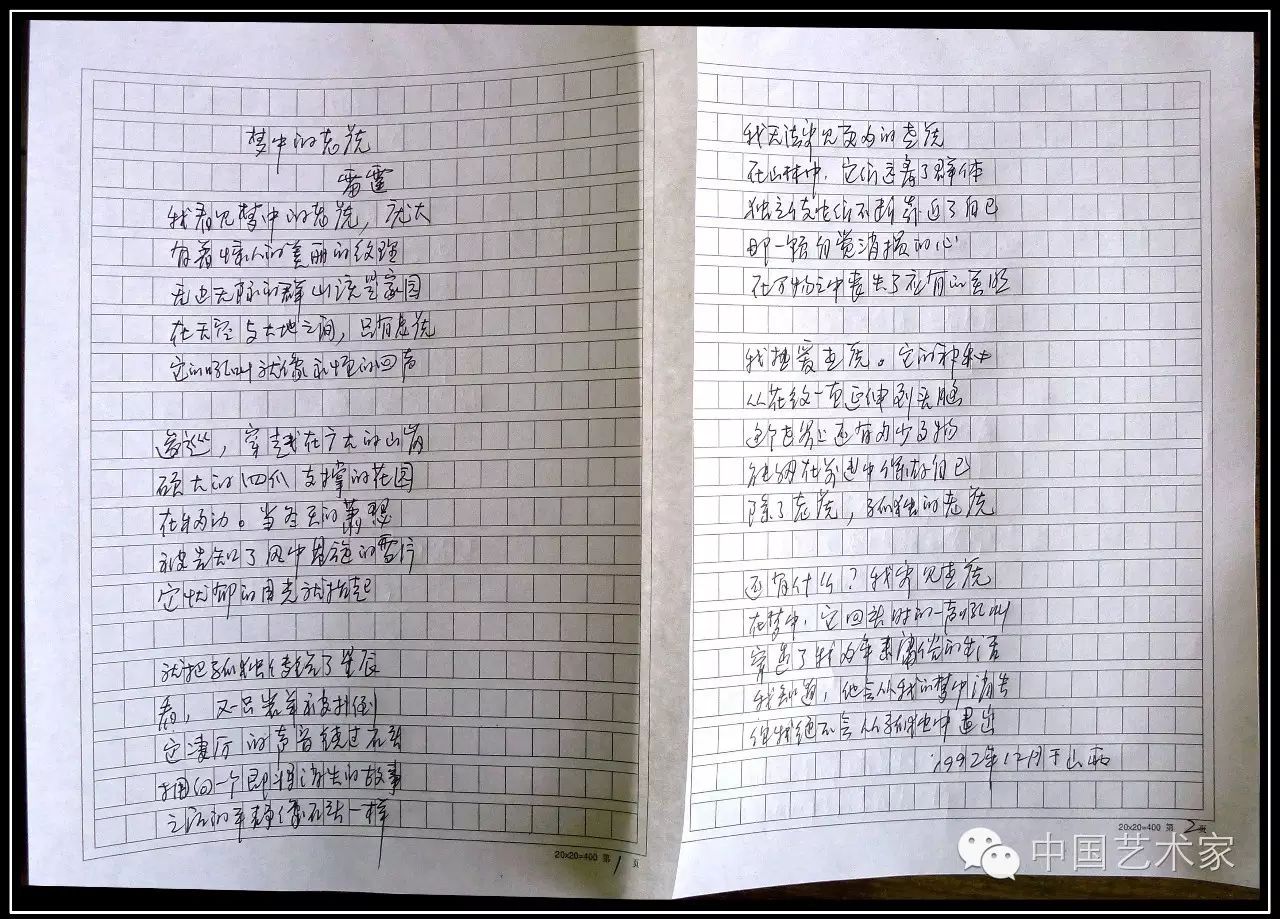 梦中的老虎
雷霆
我看见梦中的老虎，庞大
有着惊人的美丽的纹理
无边无际的群山该是家园
在天空与大地之间，只有老虎
它的吼叫就像永恒的回声
穿越在广大的山岗
硕大的四爪支撑的花园
在移动。当冬天的萧瑟
被告知了风中的雪片
它忧郁的目光就抬起
就把孤独传给了星辰
看，又一只羔羊被扑倒
它凄厉的声音绕过石头
掴回一个即将消失的故事
之后的平静像石头一样
我无法审见更多的老虎
在山林中，它们远离了群体
独立使它们不断靠近了自己
那一颗自觉消损的心
在万物之中丧失了应有的差距
我热爱老虎。它的神秘
从花纹一直延伸到头脑
这个世界上还有多少事物
能够在前进中保存自己
除了老虎，孤独的老虎
还有什么？我审见老虎
在梦中，它回头时的一声吼叫
穿透了我多年来庸俗的生活
我知道，他会从我的梦中消失
但我绝不会从孤独中退出
1992年12月于山西
20x20=400 第1页
20x20=400 第2页
中国艺术家